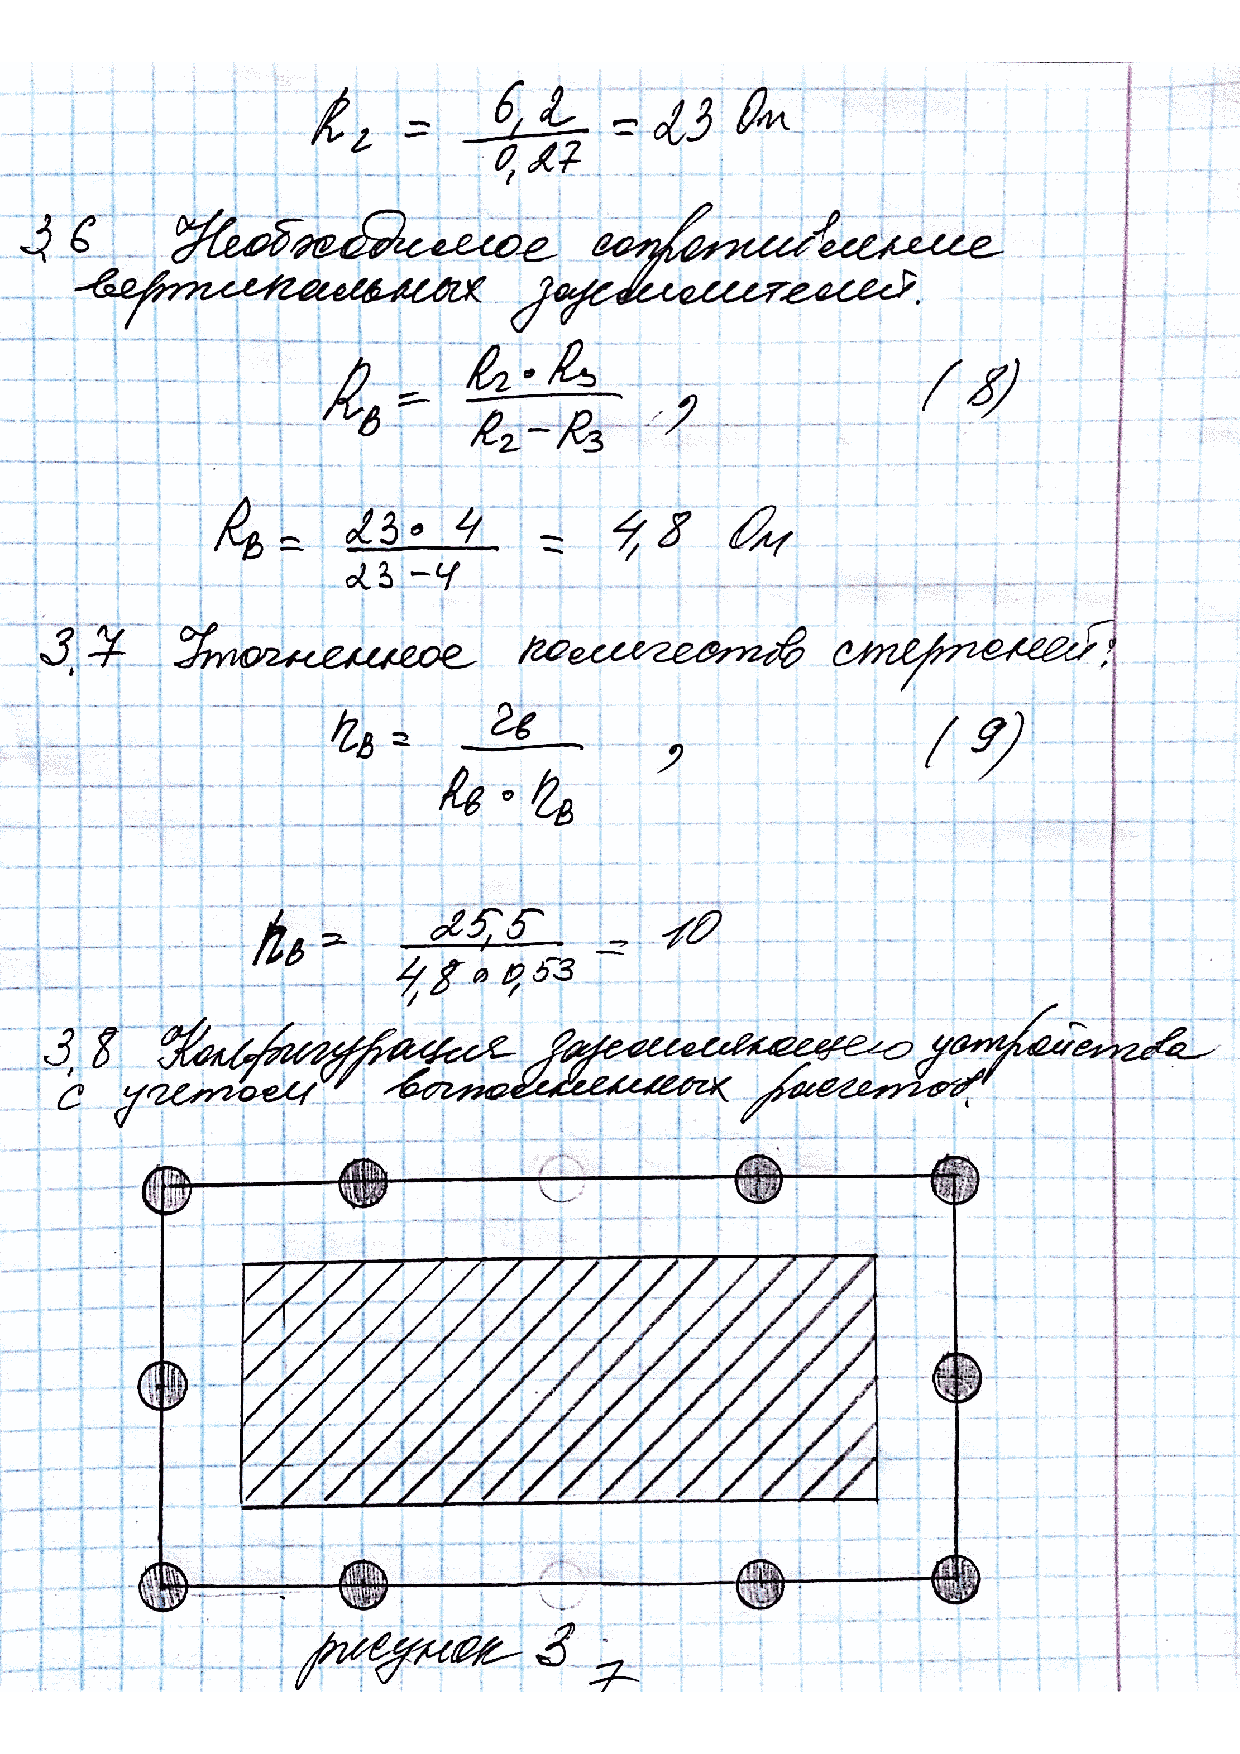 Rг = 6,2 / 0,27 = 23 Ом
3,6 Необходимое сопротивление
вертикальных заземлителей.
Rв = Rг • Rз / Rг – Rз , (8)
Rв = 23 • 4 / 23 – 4 = 4,8 Ом
3,7 Уточненное количество стержней:
nв = rв / Rв • ηв , (9)
nв = 25,5 / 4,8 • 0,53 = 10
3,8 Конфигурация заземляющего устройства
с учетом выполненных расчетов.
рисунок 3
7